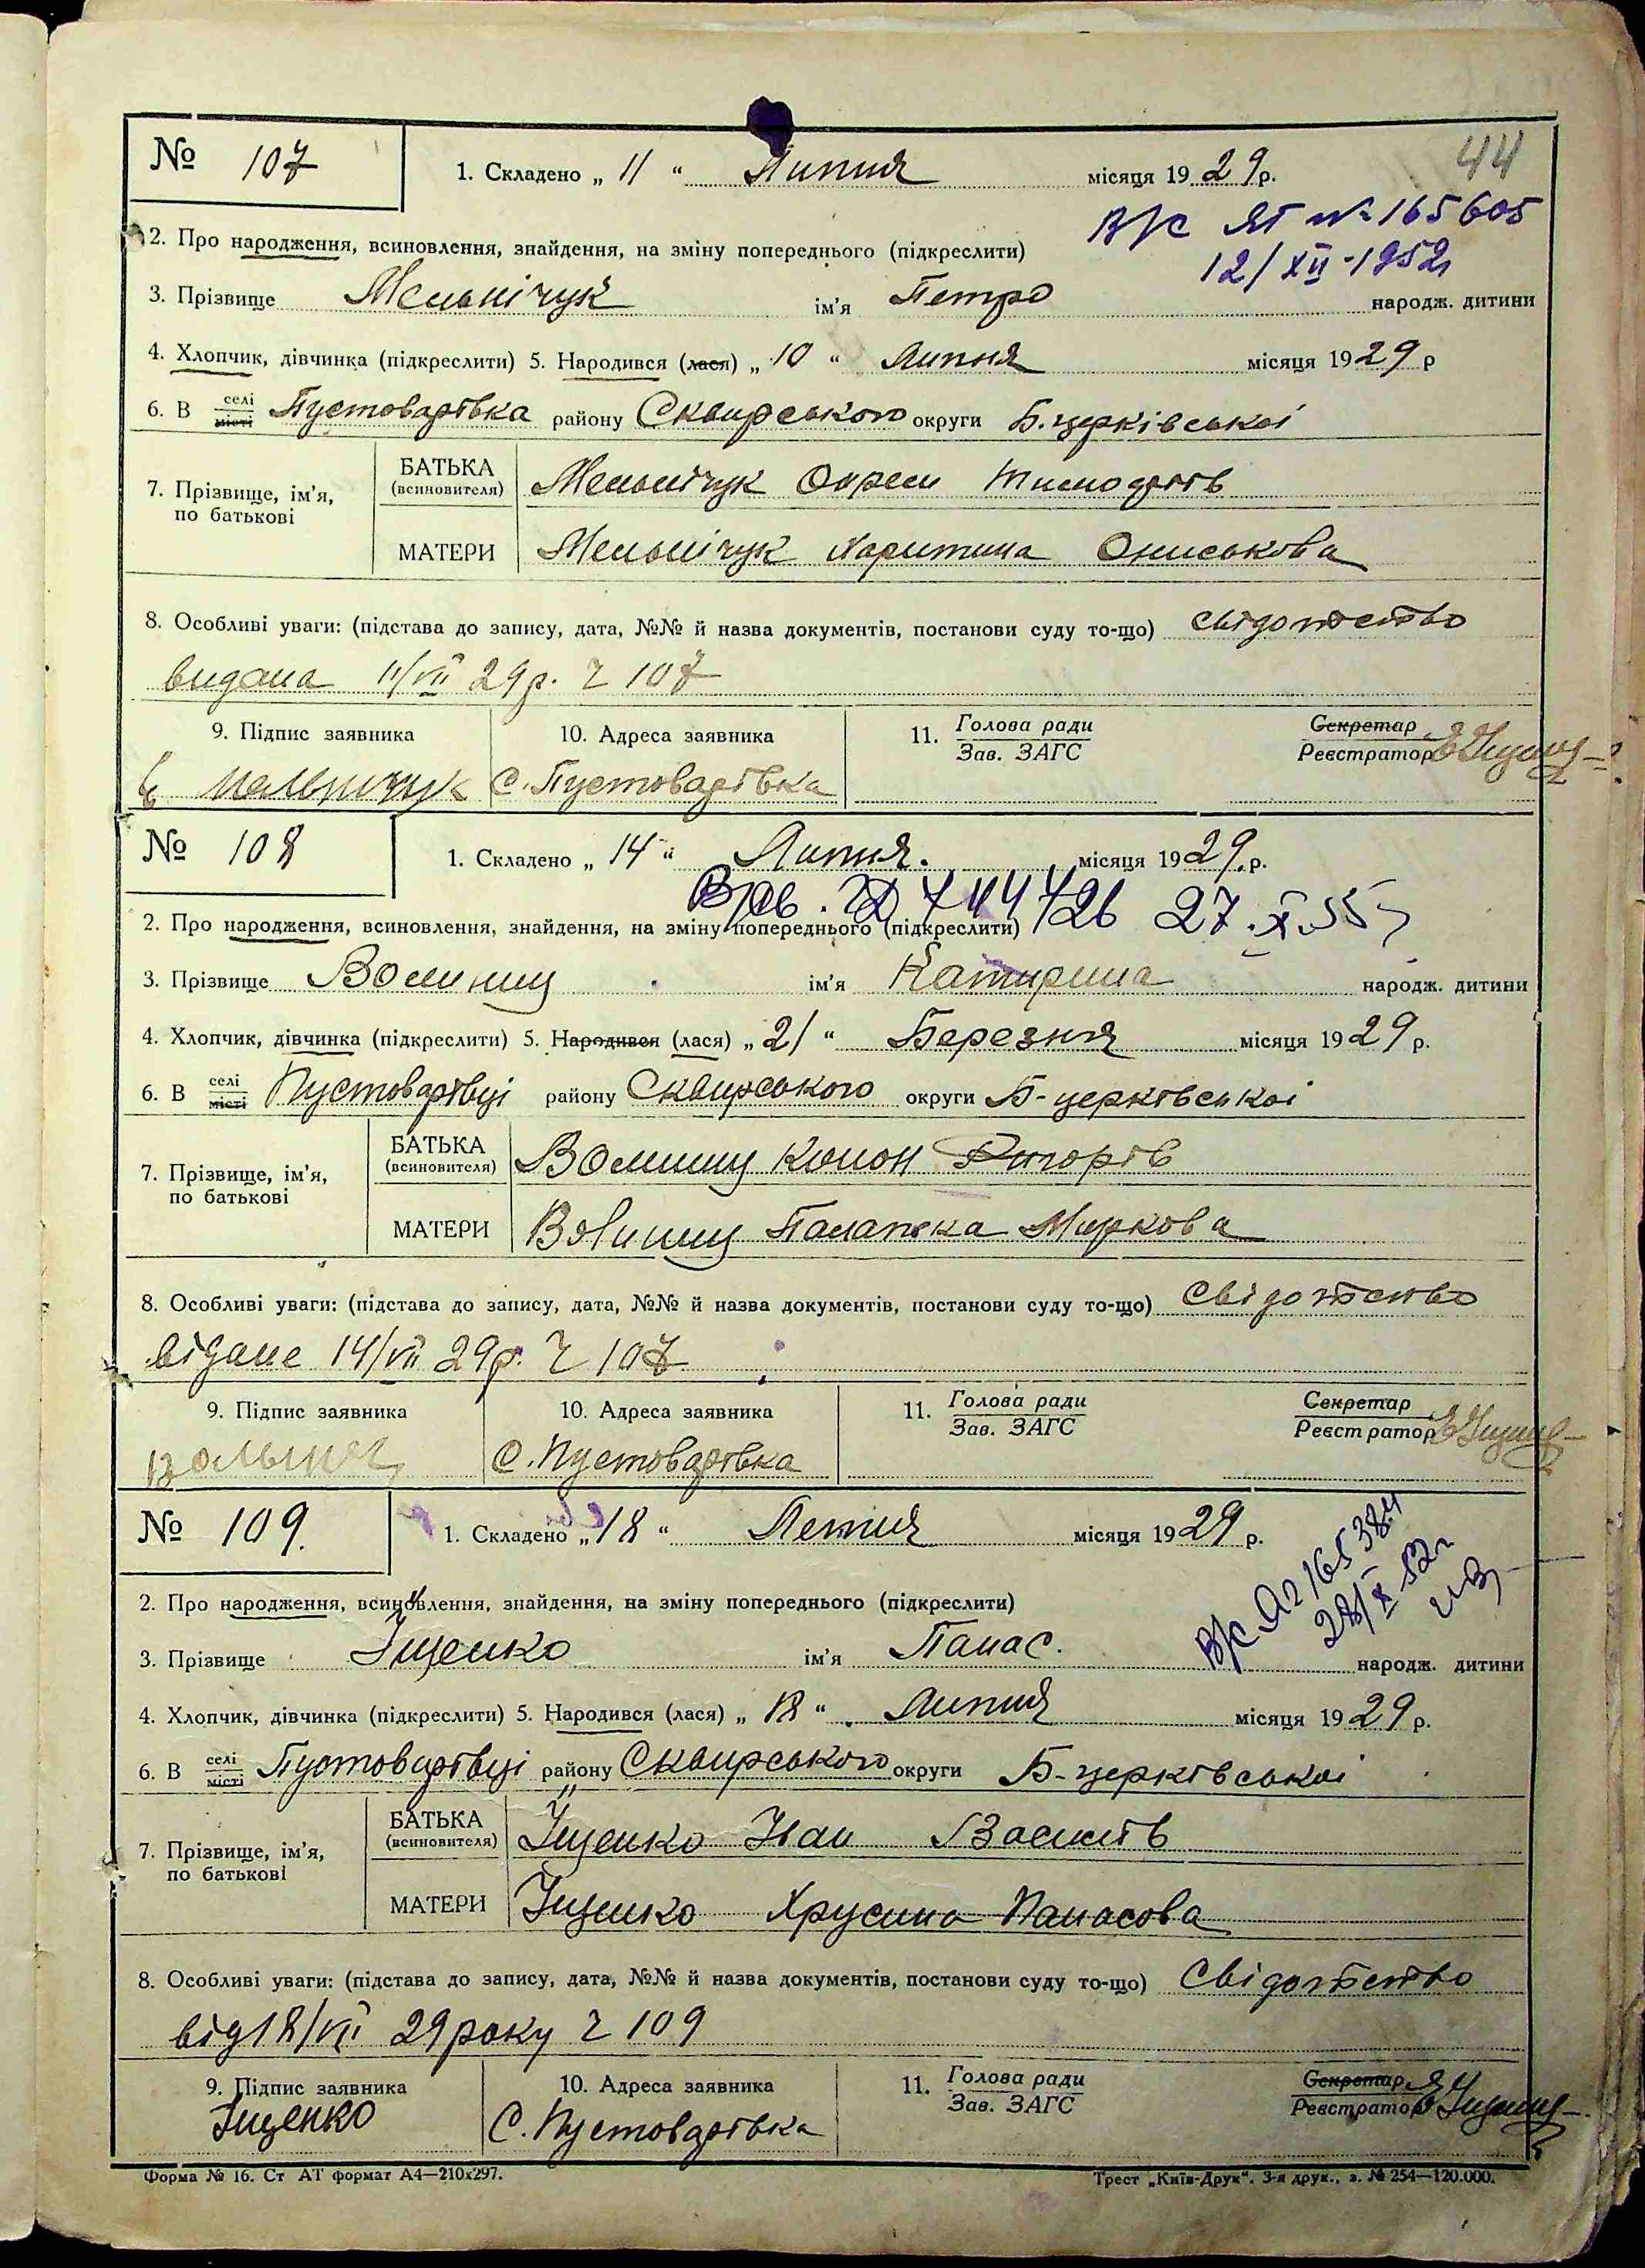 44
№ 107 1. Складено „ 11 “ Липня місяця 19 29 р.
В/с ЯГ № 165605
12/XII-1952
2. Про народження, всиновлення, знайдення, на зміну попереднього (підкреслити)
3. Прізвище Мельнічук ім’я Петро народж. дитини
4. Хлопчик, дівчинка (підкреслити) 5. Народився (лася) „ 10 “ Липня місяця 19 29 р
6. В селі місті Пустоварівка району Сквирського округи Б. церківської
7. Прізвище, ім’я, по батькові
БАТЬКА (всиновителя) Мельнічук
МАТЕРИ Мельнічук Харитина Ониськова
8. Особливі уваги: (підстава до запису, дата, №№ й назва документів, постанови суду то-що) свідоцтво
видана 11/VII 29 р. Ч 107
9. Підпис заявника 10. Адреса заявника 11. Голова ради Зав. ЗАГС Секретар Реєстратор
Мельничук С. Пустоварівка
№ 108 1. Складено „ 14 “ Липня. місяця 19 29 р.
27.X.55
2. Про народження, всиновлення, знайдення, на зміну попереднього (підкреслити)
3. Прізвище Волинец ім’я Катирина народж. дитини
4. Хлопчик, дівчинка (підкреслити) 5. Народився (лася) „ 21 “ Березня місяця 19 29 р.
6. В селі місті Пустоварівці району Сквирського округи Б-церківської
7. Прізвище, ім’я, по батькові
БАТЬКА (всиновителя) Волинец Конон
МАТЕРИ Волинец Палажка Маркова
8. Особливі уваги: (підстава до запису, дата, №№ й назва документів, постанови суду то-що) Свідоцтво
відане 14/VII 29 р. Ч 107
9. Підпис заявника 10. Адреса заявника 11. Голова ради Зав. ЗАГС Секретар Реєстратор
С. Пустоварівка
№ 109. 1. Складено „ 18 “ Липня місяця 19 29 р.
В/с ЯГ 165384
28/X 52 г
2. Про народження, всиновлення, знайдення, на зміну попереднього (підкреслити)
3. Прізвище Іщенко ім’я Панас. народж. дитини
4. Хлопчик, дівчинка (підкреслити) 5. Народився (лася) „ 18 “ Липня місяця 19 29 р.
6. В селі місті Пустоварівці району Сквирського округи Б-церківської
7. Прізвище, ім’я, по батькові
БАТЬКА (всиновителя) Іщенко Іван Василів
МАТЕРИ Іщенко Хрусина Панасова
8. Особливі уваги: (підстава до запису, дата, №№ й назва документів, постанови суду то-що) Свідоцтво
від 18/VII 29 року Ч 109
9. Підпис заявника 10. Адреса заявника 11. Голова ради Зав. ЗАГС Секретар Реєстратор
Іщенко С. Пустоварівка
Форма № 16. Ст АТ формат А4—210x297. Трест „Київ-Друк“. 3-я друк., з. № 254—120.000.